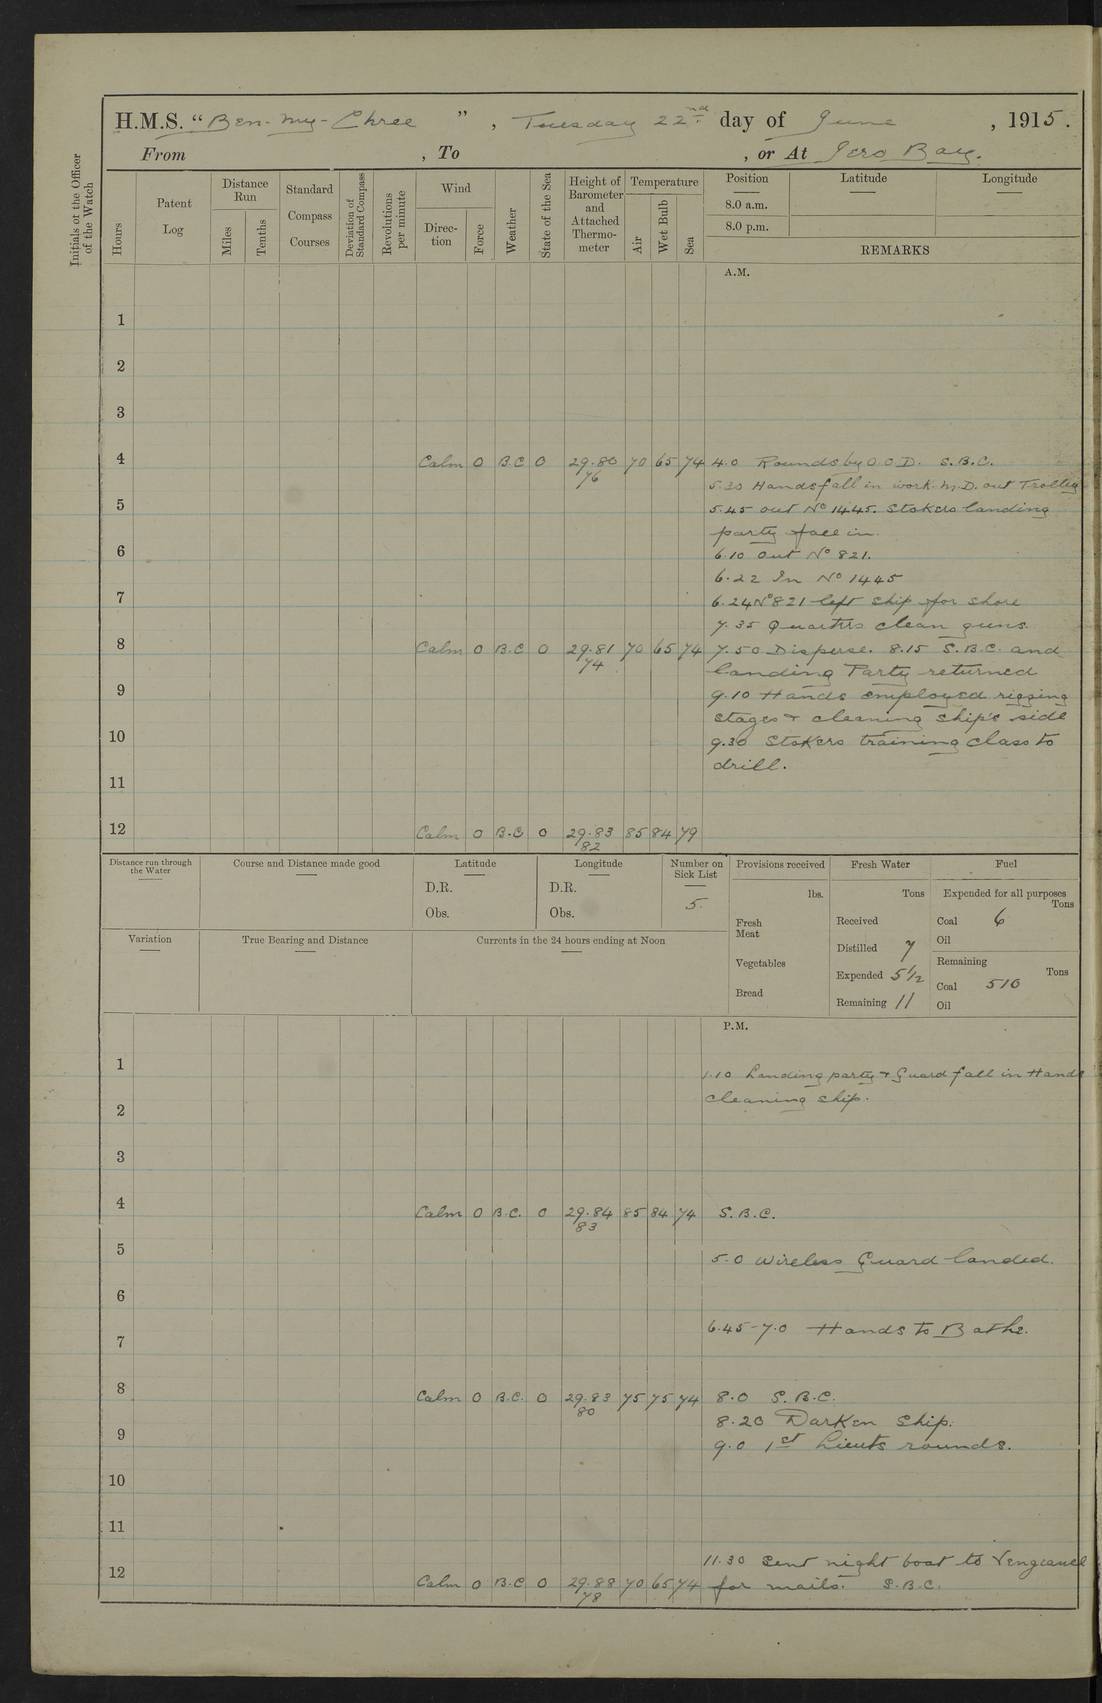 H.M.S. "Ben-my-Chree", Tuesday 22nd day of June, 1915.
From , To , or At Iero Bay.
Initials of the Officer of the Watch
Hours
Patent Log
Distance Run
Miles
Tenths
Standard Compass Courses
Deviation of Standard Compass
Revolutions per minute
Wind
Direction
Force
Weather
State of the Sea
Height of Barometer and Attached Thermometer
Temperature
Air
Wet Bulb
Sea
Position Latitude Longitude
8.0 a.m.
8.0 p.m.
REMARKS
A.M.
1
2
3
4 Calm 0 B.C 0 29.80 70 65 74 4.0 Rounds by O.O.D. S.B.C.
76
5.30 Hands fall in work. M.D. out Trolley
5 5.45 out No 1445. Stokers landing
party fall in.
6 6.10 Out No 821.
6.22 In No 1445
7 6.24 No 821 left ship for shore
7.35 Quarters clean guns.
8 Calm 0 B.C 0 29.81 70 65 74 7.50 Disperse. 8.15 S.B.C. and
74
landing Party returned
9 9.10 Hands employed rigging
stages + cleaning ship's side
10 9.30 Stokers training class to
drill.
11
12 Calm 0 B.C 0 29.83 85 84 79
82
Distance run through the Water
Course and Distance made good
Latitude
D.R.
Obs.
Longitude
D.R.
Obs.
Number on Sick List
5.
Provisions received
lbs.
Fresh Meat
Vegetables
Bread
Fresh Water
Tons
Received
Distilled 7
Expended 5 1/2
Remaining 11
Fuel
Expended for all purposes
Tons
Coal 6
Oil
Remaining
Tons
Coal 510
Oil
Variation
True Bearing and Distance
Currents in the 24 hours ending at Noon
P.M.
1 1.10 Landing party + Guard fall in Hands
2 cleaning ship.
3
4 Calm 0 B.C. 0 29.84 85 84 74 S.B.C.
83
5 5.0 Wireless Guard landed.
6
7 6.45-7.0 Hands to Bathe.
8 Calm 0 B.C. 0 29.83 75 75 74 8.0 S.B.C.
80
8.20 Darken Ship.
9 9.0 1st Lieuts rounds.
10
11
11.30 Sent night boat to Vengeance
12 Calm 0 B.C 0 29.88 70 65 74 for mails. S.B.C.
78